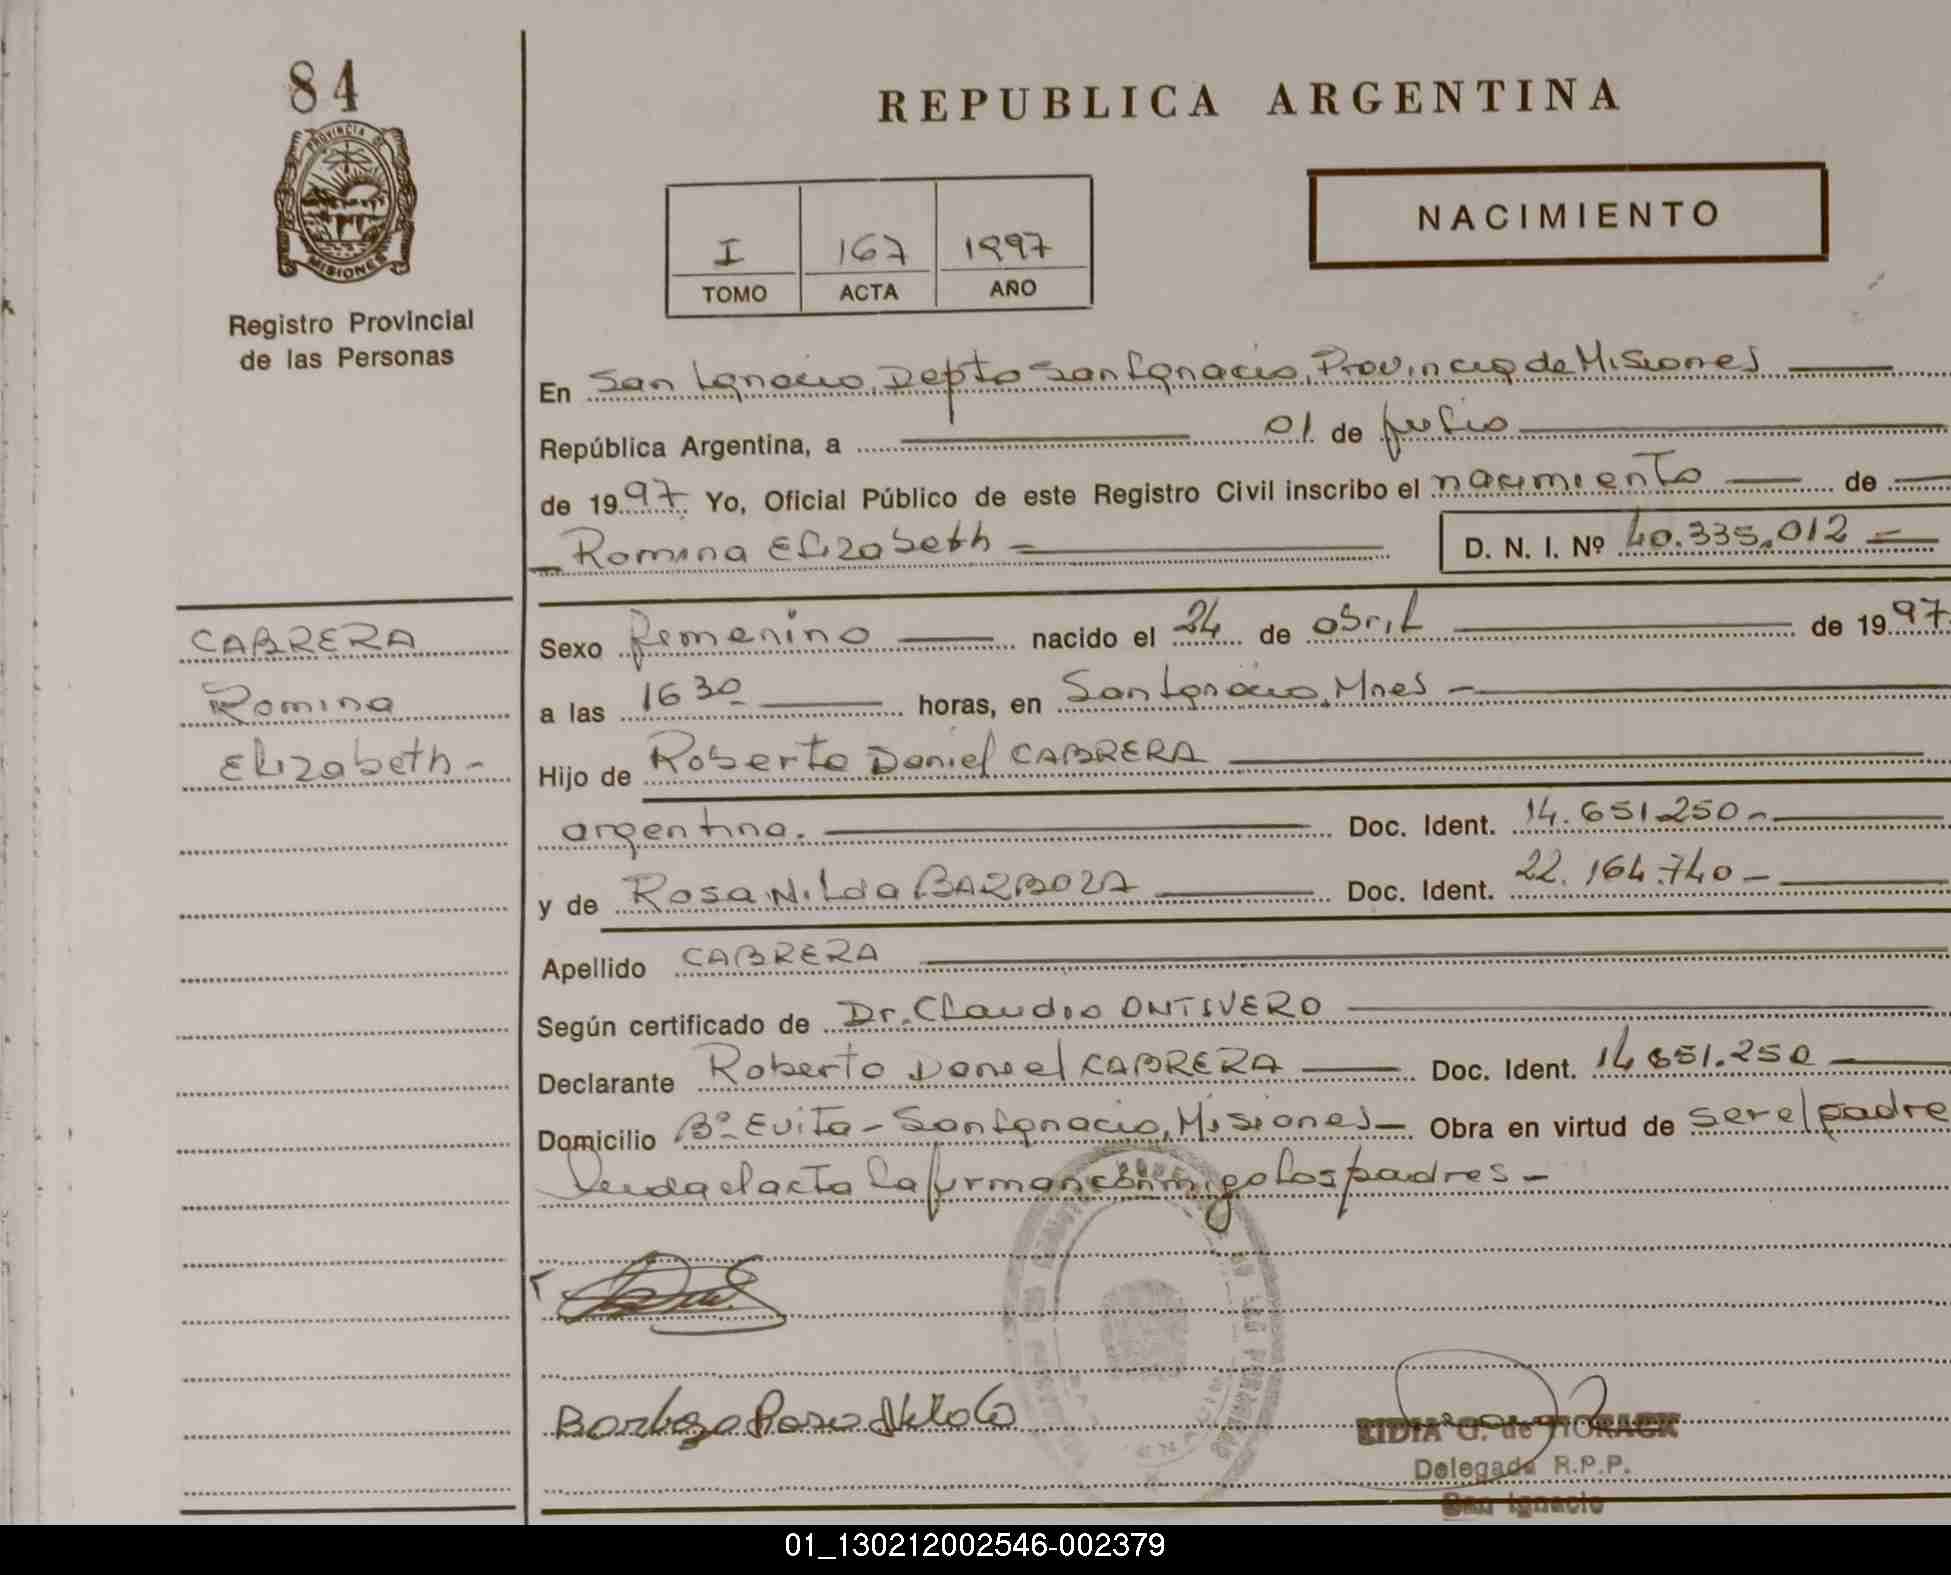 84
REPUBLICA ARGENTINA
PROVINCIA DE
MISIONES
Registro Provincial
de las Personas
NACIMIENTO
I 167 1997
TOMO ACTA AÑO
En San Ignacio, Depto San Ignacio, Provincia de Misiones
República Argentina, a 01 de julio
de 1997 Yo, Oficial Público de este Registro Civil inscribo el nacimiento de
Romina Elizabeth D. N. I. Nº 40.335.012
CABRERA
Romina
Elizabeth
Sexo femenino nacido el 24 de abril de 1997
a las 16 30 horas, en San Ignacio, Mnes
Hijo de Roberto Daniel CABRERA
argentina. Doc. Ident. 14.651.250
y de Rosa Nilda BARBOZA Doc. Ident. 22.164.740
Apellido CABRERA
Según certificado de Dr. Claudio ONTIVERO
Declarante Roberto Daniel CABRERA Doc. Ident. 14.651.250
Domicilio Bº Evita - San Ignacio, Misiones Obra en virtud de ser el padre
Leida el acta la firman conmigo los padres
Barboza Rosa Nilda
LIDIA G. de HORACK
Delegada R.P.P.
San Ignacio
01_130212002546-002379